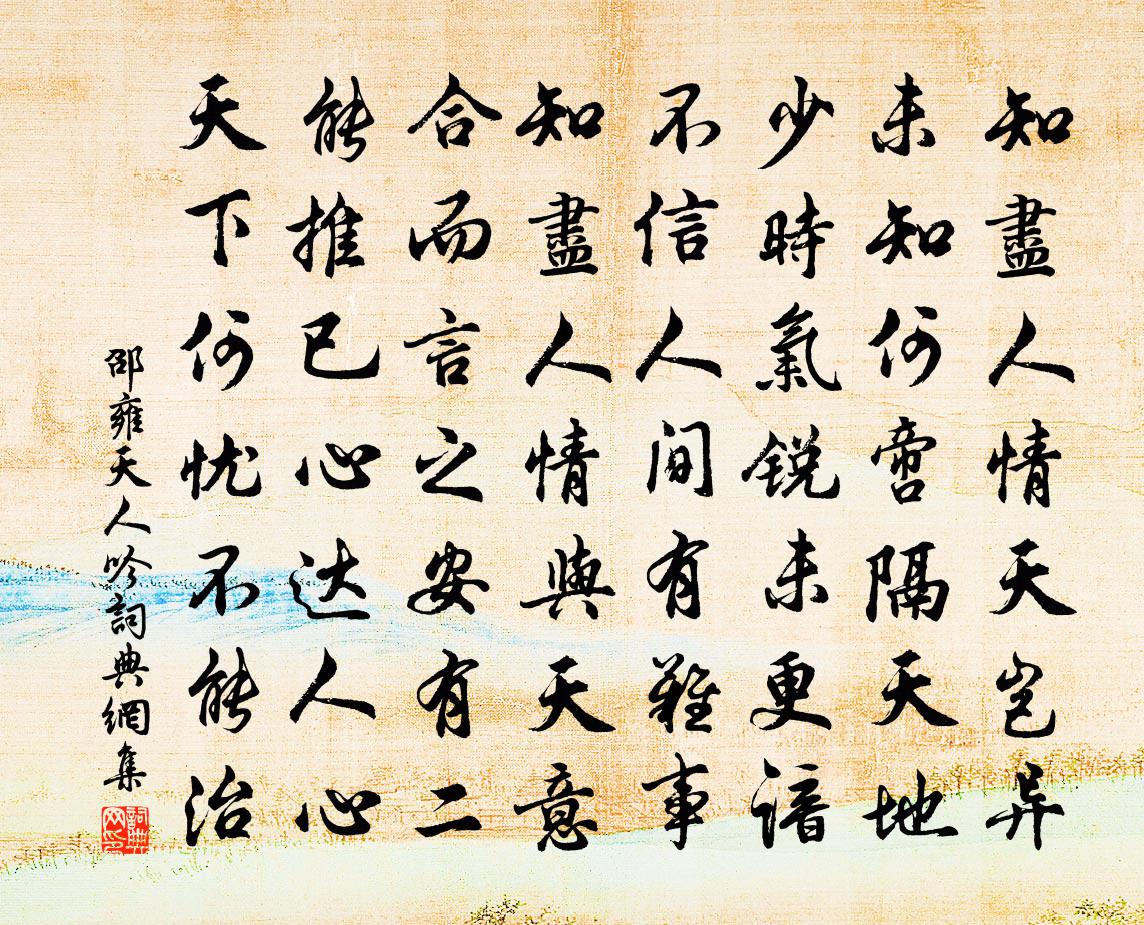 知盡人情天岂异
未知何啻隔天地
少時氣锐未更谙
不信人间有難事
知盡人情與天意
合而言之安有二
能推已心达人心
天下何忧不能治
邵雍天人吟詞典網集
詞典網